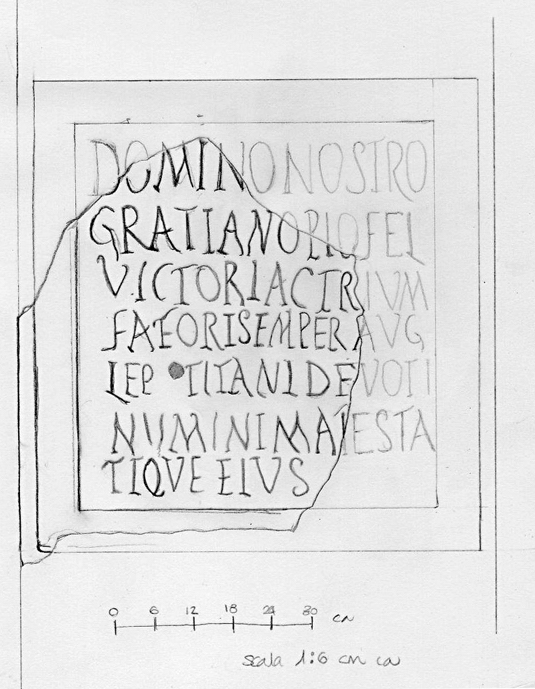 DOMINO NOSTRO
GRATIANO PIO FEL
VICTORI AC TRIUM
FATORI SEMPER AVG
LEP TITANI DEVOTI
NUMINI MAIESTA
TIQVE EIVS
0 6 12 18 24 30 cm
scala 1:6 cm ca